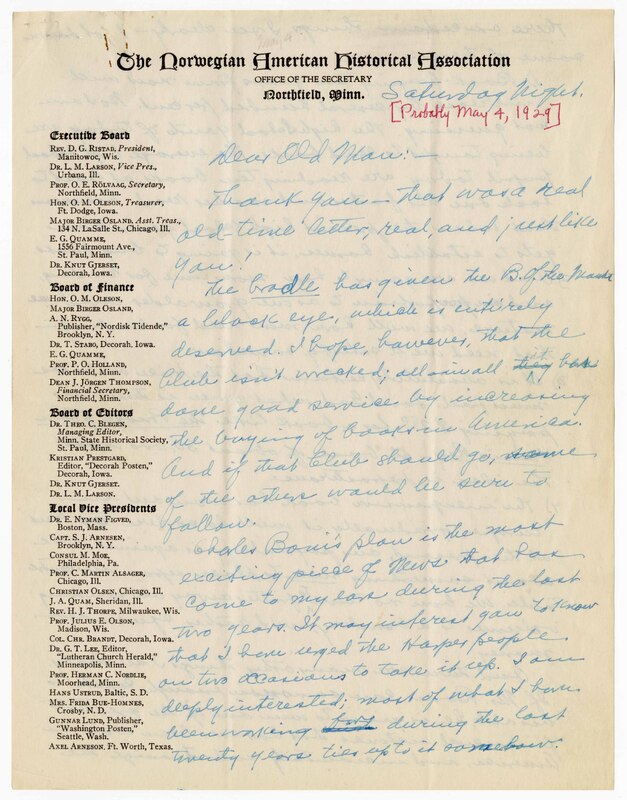 The Norwegian American Historical Association
OFFICE OF THE SECRETARY
Northfield, Minn.
Saturday Night.
[Probably May 4, 1929]
Executive Board
REV. D. G. RISTAD, President,
Manitowoc, Wis.
DR. L. M. LARSON, Vice Pres.,
Urbana, Ill.
PROF. O. E. RÖLVAAG, Secretary,
Northfield, Minn.
HON. O. M. OLESON, Treasurer,
Ft. Dodge, Iowa.
MAJOR BIRGER OSLAND, Asst. Treas.,
134 N. LaSalle St., Chicago, Ill.
E. G. QUAMME,
1556 Fairmount Ave.,
St. Paul, Minn.
DR. KNUT GJERSET,
Decorah, Iowa.
Board of Finance
HON. O. M. OLESON,
MAJOR BIRGER OSLAND,
A. N. RYGG,
Publisher, "Nordisk Tidende,"
Brooklyn, N. Y.
DR. T. STABO, Decorah, Iowa.
E. G. QUAMME,
PROF. P. O. HOLLAND,
Northfield, Minn.
DEAN J. JÖRGEN THOMPSON,
Financial Secretary,
Northfield, Minn.
Board of Editors
DR. THEO. C. BLEGEN,
Managing Editor,
Minn. State Historical Society,
St. Paul, Minn.
KRISTIAN PRESTGARD,
Editor, "Decorah Posten,"
Decorah, Iowa.
DR. KNUT GJERSET.
DR. L. M. LARSON.
Local Vice Presidents
DR. E. NYMAN FIGVED,
Boston, Mass.
CAPT. S. J. ARNESEN,
Brooklyn, N. Y.
CONSUL M. MOE,
Philadelphia, Pa.
PROF. C. MARTIN ALSAGER,
Chicago, Ill.
CHRISTIAN OLSEN, Chicago, Ill.
J. A. QUAM, Sheridan, Ill.
REV. H. J. THORPE, Milwaukee, Wis.
PROF. JULIUS E. OLSON,
Madison, Wis.
COL. CHR. BRANDT, Decorah, Iowa.
DR. G. T. LEE, Editor,
"Lutheran Church Herald,"
Minneapolis, Minn.
PROF. HERMAN C. NORDLIE,
Moorhead, Minn.
HANS USTRUD, Baltic, S. D.
MRS. FRIDA BUE-HOMNES,
Crosby, N. D.
GUNNAR LUND, Publisher,
"Washington Posten,"
Seattle, Wash.
AXEL ARNESON, Ft. Worth, Texas.
Dear Old Man:—
Thank you — that was a real
old-time letter, real, and just like
you.
The Cradle has given the B. of the Month
a black eye, which is entirely
deserved. I hope, however, that the
Club isn't wrecked; all in all they has
done good service by increasing
the buying of books in America.
And if that Club should go, some
of the others would be sure to
follow.
Charles Boni's plan is the most
exciting piece of News that has
come to my ears during the last
two years. It may interest you to know
that I have urged the Harper people
on two occasions to take it up. I am
deeply interested; most of what I have
been working during the last
twenty years ties up to it somehow.